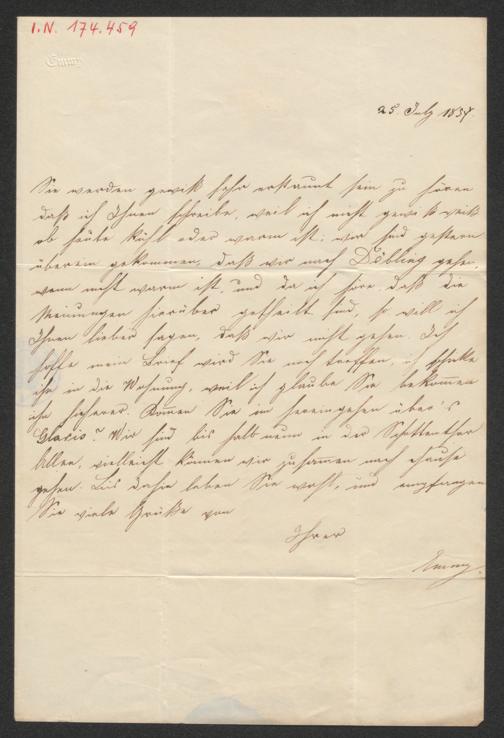 I.N. 174.459
Emmy
25. July 1857
Sie werden gewiß sehr erstaunt sein zu hören
daß ich Ihnen schreibe, weil ich nicht gewiß weiß
ob heute kühl oder warm ist; wir sind gestern
überein gekommen, daß wir nach Döbling gehen,
wenn nicht warm ist, und da ich höre, daß die
Meinungen hierüber getheilt sind, so will ich
Ihnen lieber sagen, daß wir nicht gehen. Ich
hoffe mein Brief wird Sie noch treffen, ich schicke
ihn in die Wohnung, weil ich glaube Sie bekom̄en
ihn sicherer. Kom̄en Sie im hereingehen über's
Glacis? Wir sind bis halb neun in der Schottenthor
Allee, vielleicht können wir zusam̄en nach Hause
gehen. Bis dahin leben Sie wohl, und empfangen
Sie viele Grüße von
Ihrer
Emmy.